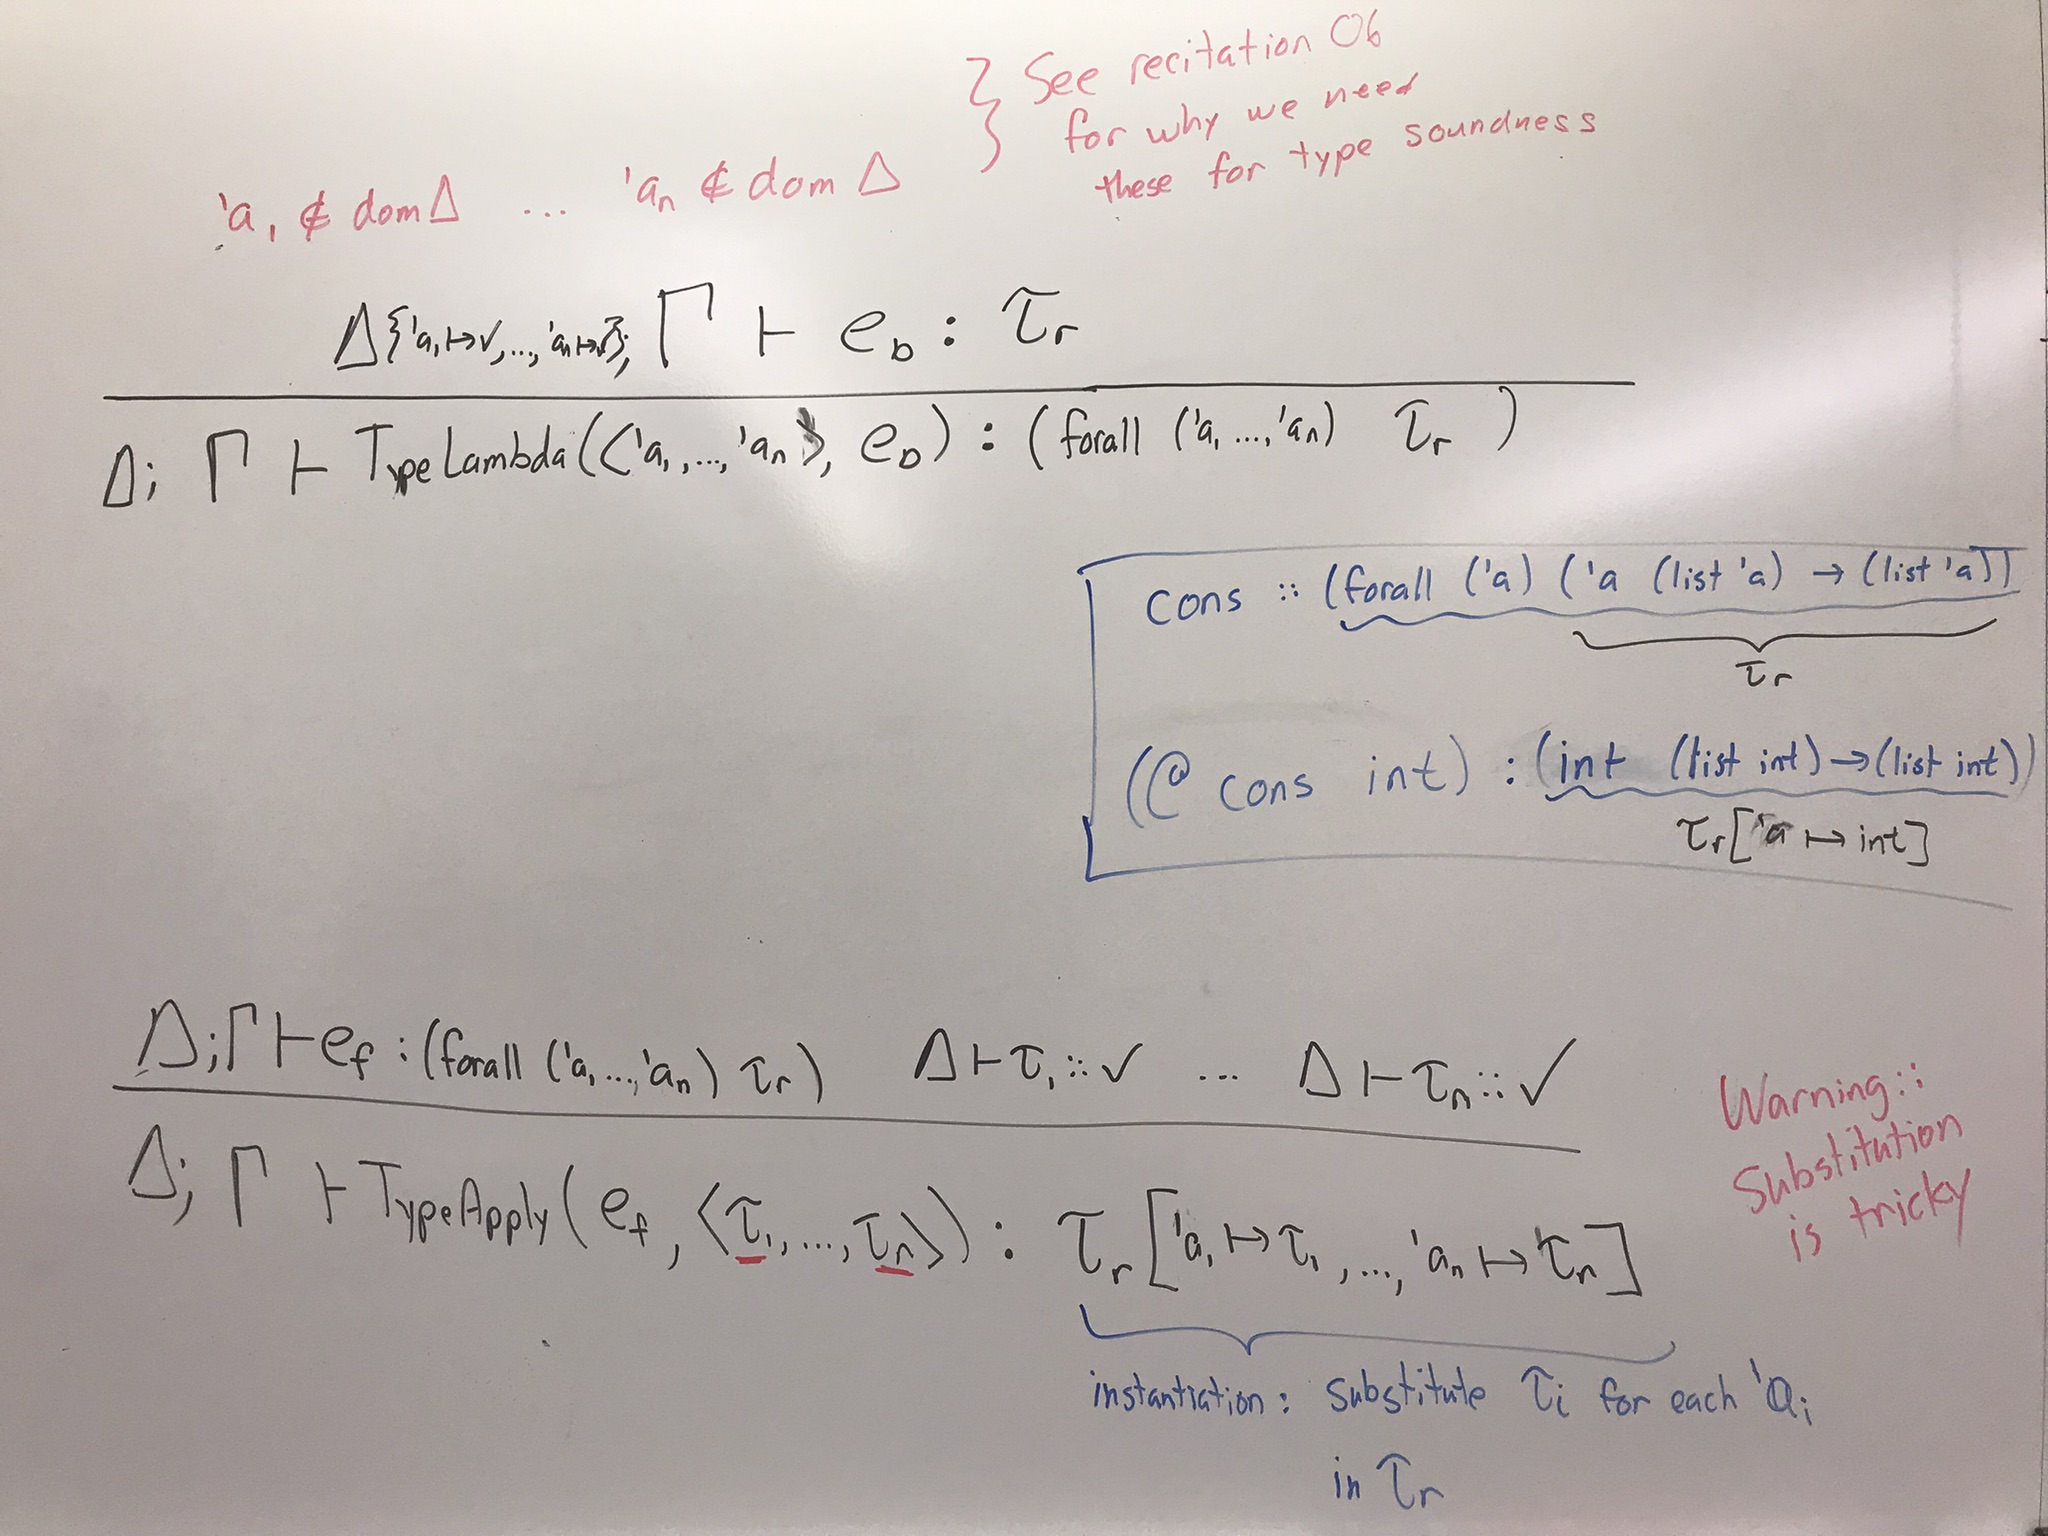 'a₁ ∉ dom Δ ... 'aₙ ∉ dom Δ
} See recitation 06
for why we need
these for type soundness
Δ{'a₁ ↦ ✓, ..., 'aₙ ↦ ✓}; Γ ⊢ e_b : τ_r
Δ; Γ ⊢ TypeLambda(⟨'a₁, ..., 'aₙ⟩, e_b) : (forall ('a₁ ..., 'aₙ) τ_r )
cons :: (forall ('a) ('a (list 'a) → (list 'a)))
τ_r
(@ cons int) : (int (list int) → (list int))
τ_r['a ↦ int]
Δ; Γ ⊢ e_f : (forall ('a₁ ..., 'aₙ) τ_r) Δ ⊢ τ₁ :: ✓ ... Δ ⊢ τₙ :: ✓
Δ; Γ ⊢ TypeApply(e_f, ⟨τ₁, ..., τₙ⟩) : τ_r['a₁ ↦ τ₁, ..., 'aₙ ↦ τₙ]
Warning::
Substitution
is tricky
instantiation: substitute τᵢ for each 'aᵢ
in τ_r